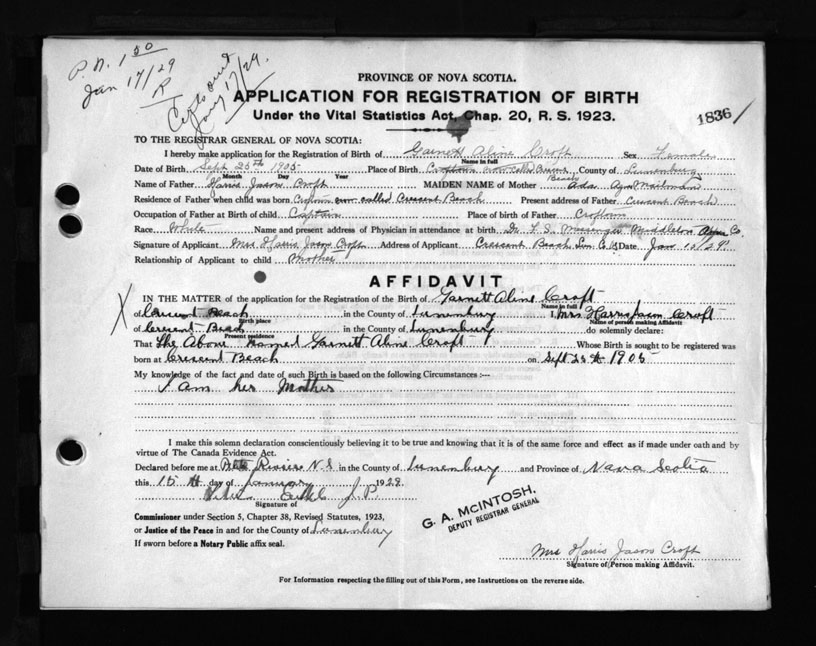 P.N. 1.50
Jan 17/29
R
Jany 17/29.
PROVINCE OF NOVA SCOTIA.
APPLICATION FOR REGISTRATION OF BIRTH
Under the Vital Statistics Act, Chap. 20, R. S. 1923.
1836
TO THE REGISTRAR GENERAL OF NOVA SCOTIA:
I hereby make application for the Registration of Birth of Garnett Aline Croft Sex Female
Name in full
Date of Birth Sept 25th 1905 Place of Birth now called Crescent Beach County of Lunenburg
Month Day Year
Name of Father Harris Jason Croft MAIDEN NAME of Mother Ada
Residence of Father when child was born now called Crescent Beach Present address of Father Crescent Beach
Occupation of Father at Birth of child Captain Place of birth of Father
Race White Name and present address of Physician in attendance at birth Dr Middleton Co.
Signature of Applicant Mrs Harris Jason Croft Address of Applicant Crescent Beach Lun Co NS Date Jan 15/29
Relationship of Applicant to child Mother
AFFIDAVIT
IN THE MATTER of the application for the Registration of the Birth of Garnett Aline Croft
of Crescent Beach in the County of Lunenburg I, Mrs Harris Jason Croft
Birth place Name of person making Affidavit
of Crescent Beach in the County of Lunenburg do solemnly declare:
Present residence
That The Above Named Garnett Aline Croft Whose Birth is sought to be registered was
born at Crescent Beach on Sept 25th 1905
My knowledge of the fact and date of such Birth is based on the following Circumstances :—
I Am her Mother
I make this solemn declaration conscientiously believing it to be true and knowing that it is of the same force and effect as if made under oath and by
virtue of The Canada Evidence Act.
Declared before me at Riviere N.S in the County of Lunenburg and Province of Nova Scotia
this 15th day of January 1929.
J.P.
Signature of
Commissioner under Section 5, Chapter 38, Revised Statutes, 1923,
or Justice of the Peace in and for the County of Lunenburg
If sworn before a Notary Public affix seal.
G. A. McINTOSH,
DEPUTY REGISTRAR GENERAL
Mrs Harris Jason Croft
Signature of Person making Affidavit.
For Information respecting the filling out of this Form, see Instructions on the reverse side.